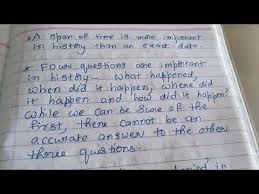 * A span of time is more important
in history than an exact date.
* Four questions are important
in history - what happened,
when did it happen, where did
it happen and how did it happen?
While we can be sure of the
first, there cannot be an
accurate answer to the other
three questions.